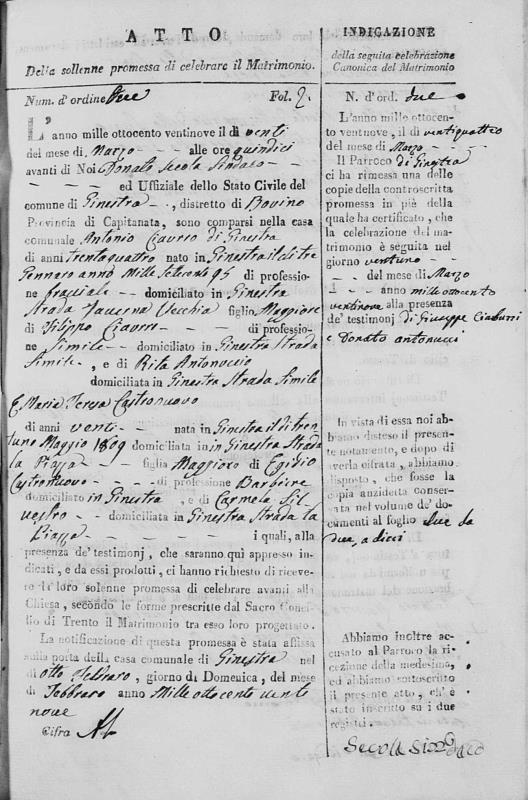 ATTO
Della sollenne promessa di celebrare il Matrimonio.
Num. d'ordine due Fol. 2.
L'anno mille ottocento ventinove il dì venti
del mese di Marzo - - - alle ore quindici
avanti di Noi Donato Secola Sindaco - -
- - - - ed Uffiziale dello Stato Civile del
comune di Ginestra - -, distretto di Bovino
Provincia di Capitanata, sono comparsi nella casa
comunale Antonio Ciaurro di Ginestra
di anni trentaquattro nato in Ginestra il dì tre
Gennaro anno Mille Settecento 95 di professio-
ne - - domiciliato in Ginestra
Strada Taverna Vecchia figlio Maggiore
di Filippo Ciaurro - - - - di professio-
ne Simile - - domiciliato in Ginestra Strada
Simile -, e di Rita Antonuccio
domiciliata in Ginestra Strada Simile
E Maria Teresa Castronuovo
di anni venti - - - nata in Ginestra il dì tren
tuno Maggio 1809 domiciliata in in Ginestra Strada
la Piazza - - - figlia Maggiore di Egidio
Castronuovo - - - - di professione Barbiere
domiciliato in Ginestra, e di Carmela Sil-
vestro - - domiciliata in Ginestra Strada la
Piazza - - - - - - - i quali, alla
presenza de' testimonj, che saranno quì appresso in-
dicati, e da essi prodotti, ci hanno richiesto di riceve-
re la loro solenne promessa di celebrare avanti alla
Chiesa, secondo le forme prescritte dal Sacro Conci-
lio di Trento il Matrimonio tra esso loro progettato.
La notificazione di questa promessa è stata affissa
sulla porta della casa comunale di Ginestra nel
dì otto Febbraro, giorno di Domenica, del mese
di Febbraro anno Mille ottocento vente
nove
Cifra
INDICAZIONE
della seguita celebrazione
Canonica del Matrimonio
N. d'ord. due
L'anno mille ottocen-
to ventnuove, il dì ventiquattro
del mese di Marzo - - -
Il Parroco di Ginestra
ci ha rimessa una delle
copie della controscritta
promessa in piè della
quale ha certificato, che
la celebrazione del ma-
trimonio è seguita nel
giorno ventuno - - -
- - del mese di Marzo
- - anno mille ottocento
ventinove alla presenza
de' testimonj di Giuseppe
e Donato antonucci
In vista di essa noi ab-
biamo disteso il presen-
te notamento, e dopo di
averla cifrata, abbiamo
disposto, che fosse la
copia anzidetta conser-
vata nel volume de' do-
cumenti al foglio due da
due, a dieci
Abbiamo inoltre ac-
cusato al Parroco la ri-
cezione della medesima,
ed abbiamo sottoscritto
il presente atto, ch' è
stato inscritto su i due
registri.
Secola Sindaco